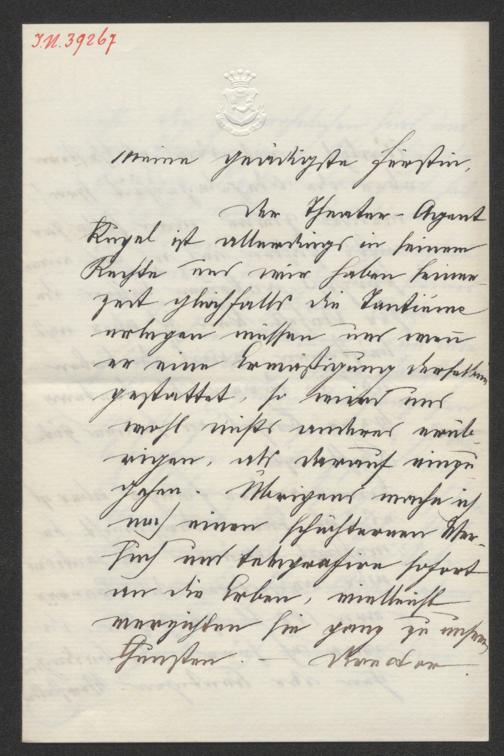 I.N. 39267
Meine gnädigste Fürstin,
Der Theater-Agent
Kugel ist allerdings in seinem
Rechte und wir haben seiner-
zeit gleichfalls die Tantième
erlegen müssen und wenn
er eine Ermäßigung derselben
gestattet, so wird uns
wohl nichts anderes erüb-
rigen, als darauf einzu
gehen. Übrigens mache ich
noch einen schüchternen Ver-
such und telegrafire sofort
an die Erben, vielleicht
verzichten sie ganz zu unsern
Gunsten. –